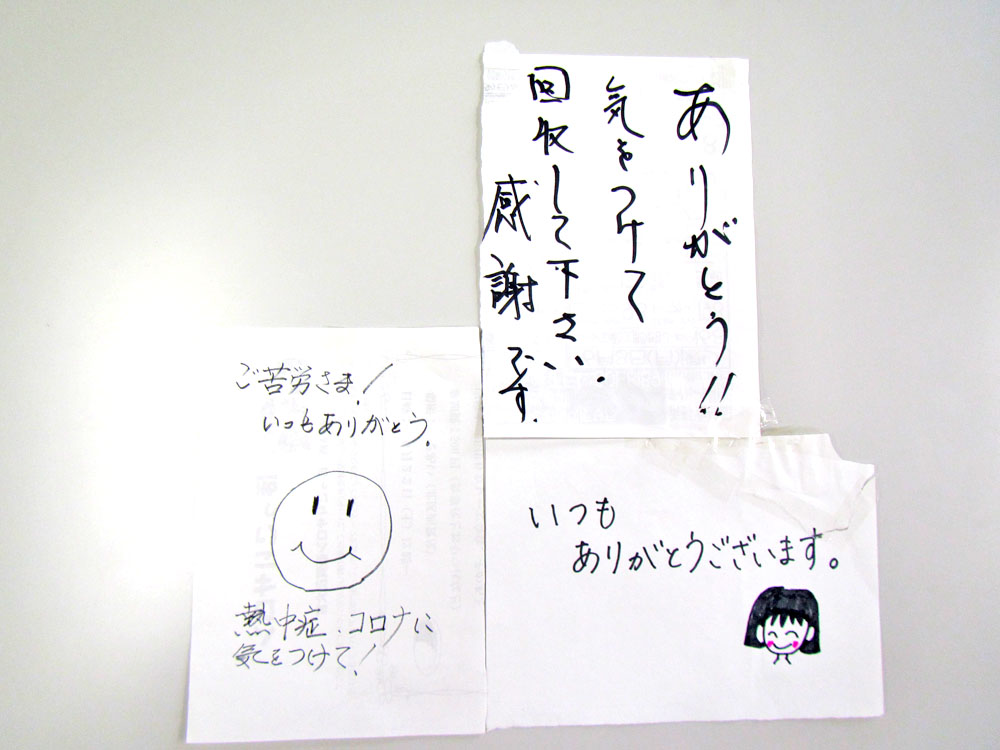 ありがとう!!
気をつけて
回収して下さい.
感謝です.
ご苦労さま!
いつもありがとう.
熱中症.コロナに
気をつけて!
いつも
ありがとうございます。